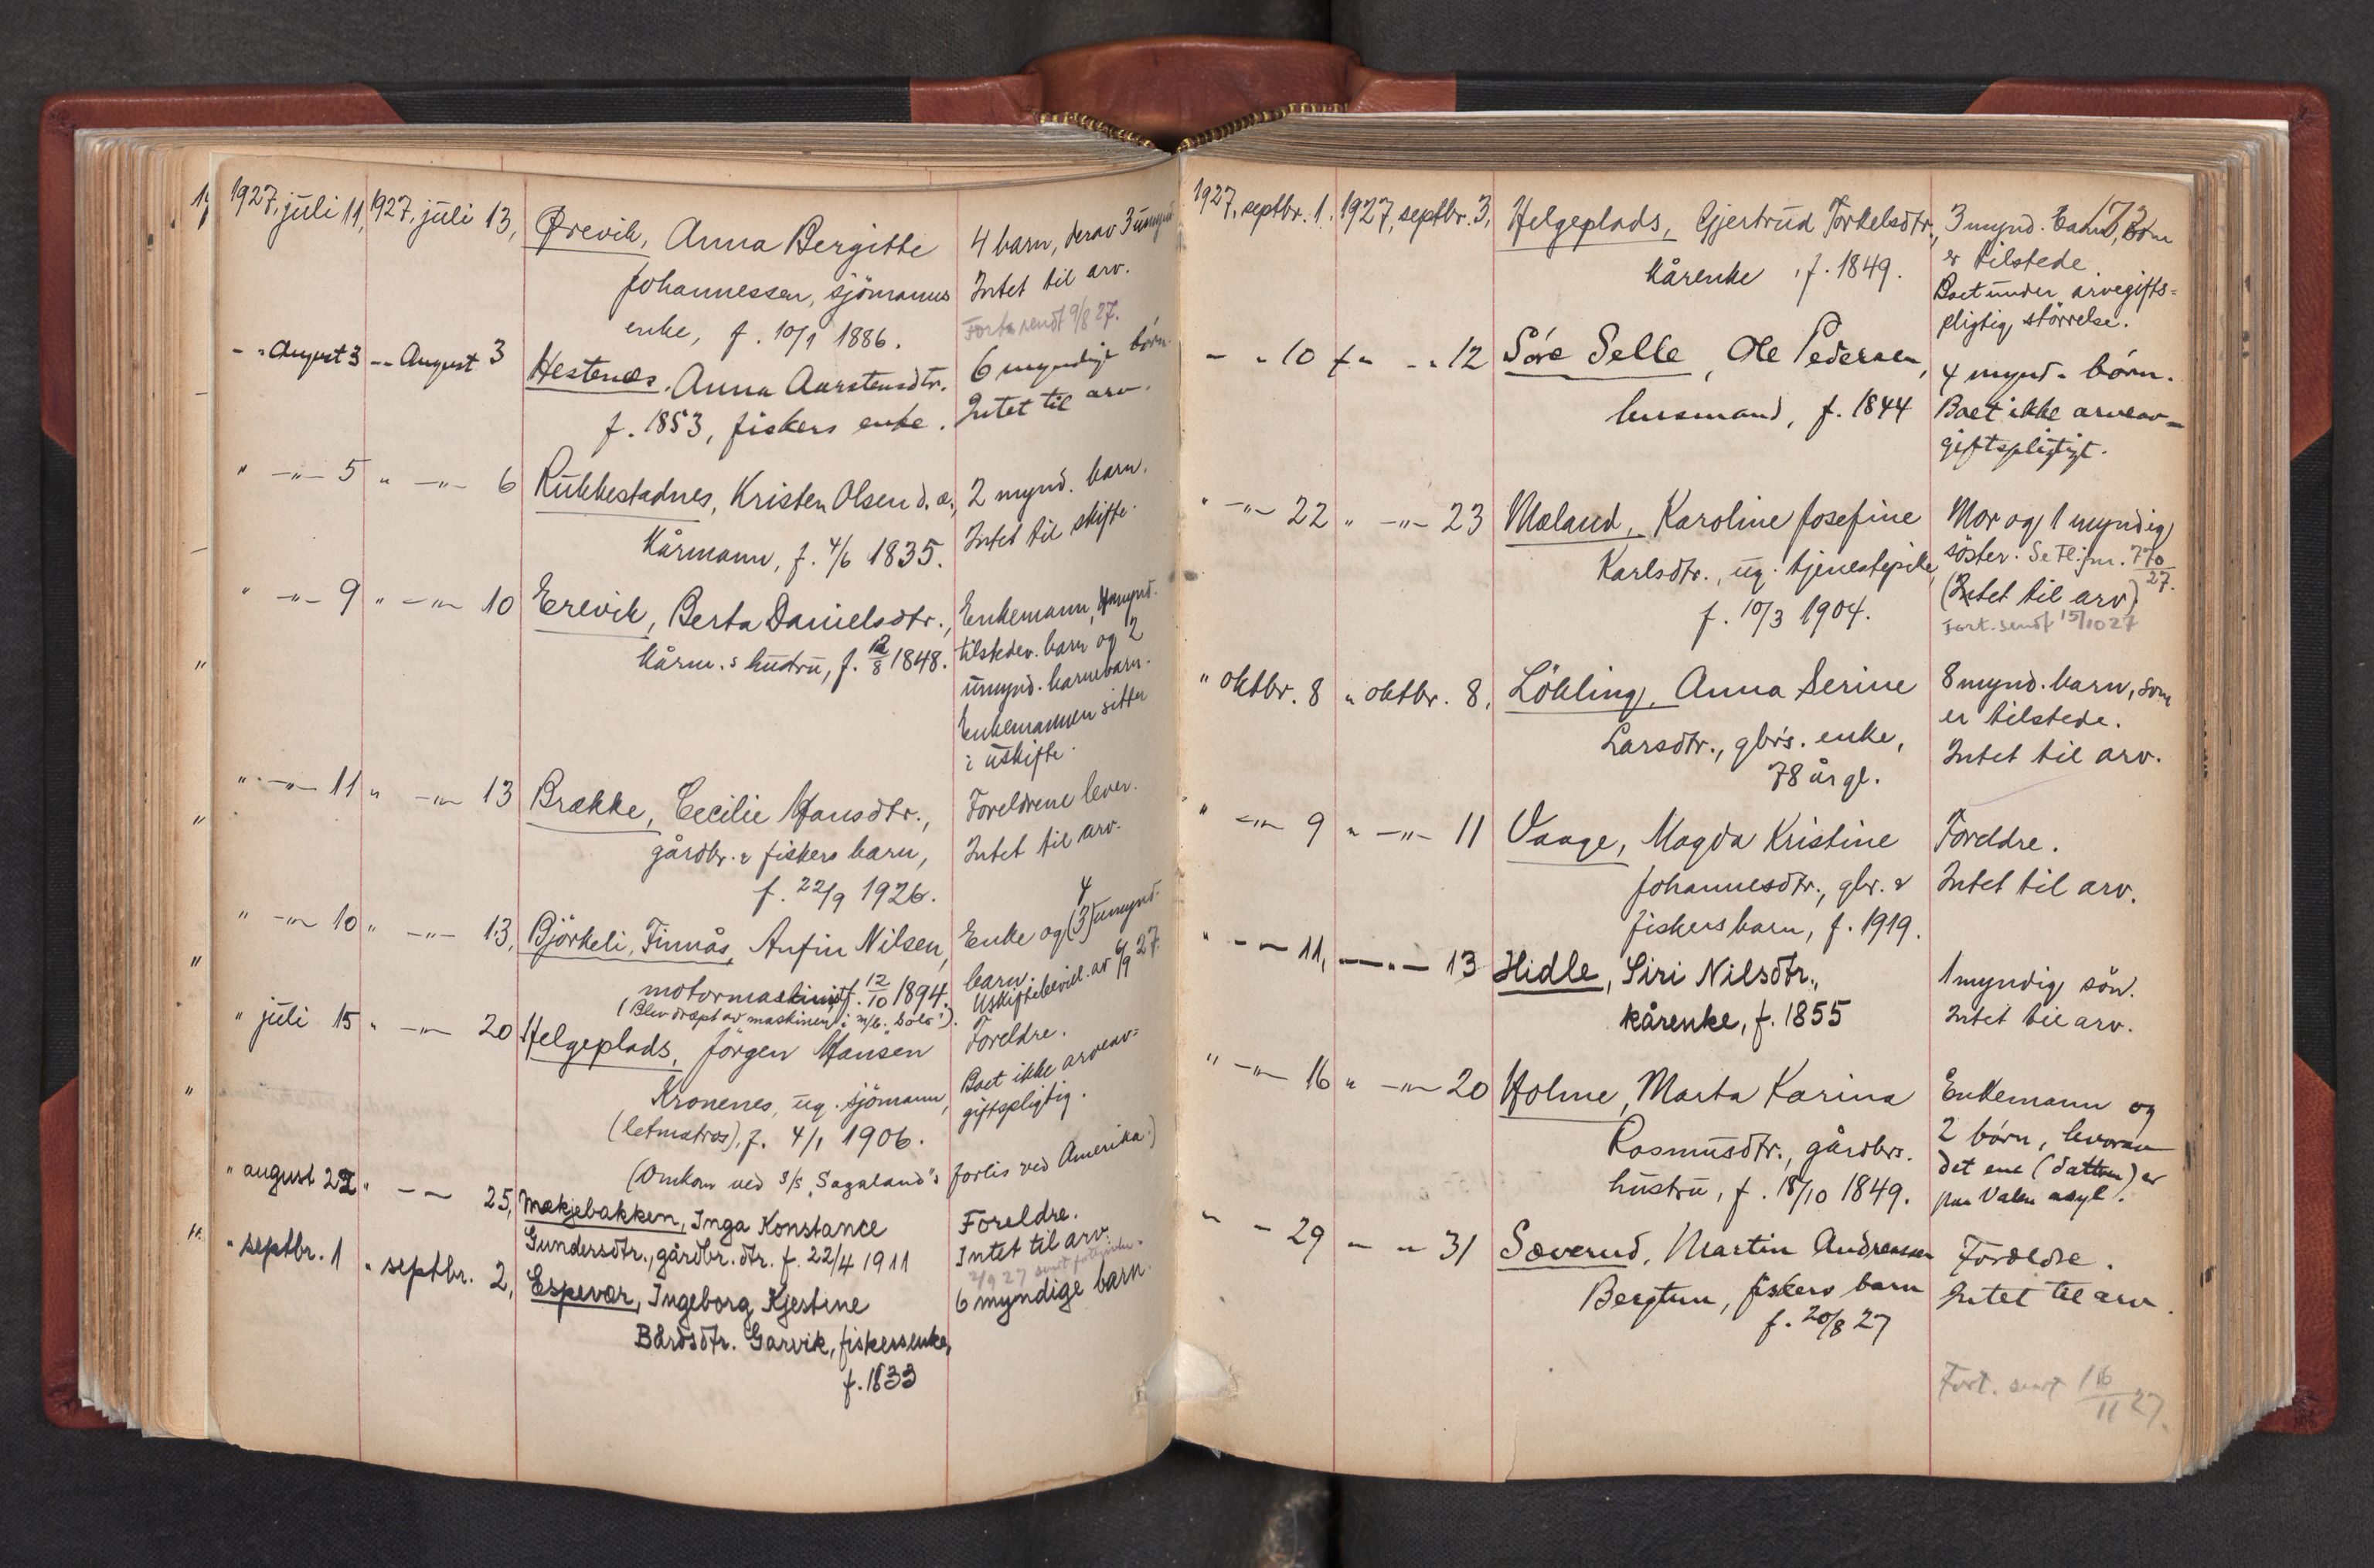 1927, juli 11, 1927, juli 13, Ørevik, Anna Bergitte 4 barn, derav 3 umynd
Johannessen, sjömanns Intet til arv.
enke, f. 10/1 1886. sendt 9/8 27.
- " August 3 - " August 3 Hestenes, Anna Aarstensdtr. 6 myndige börn.
f. 1853, fiskers enke. Intet til arv.
" -"- 5 " -"- 6 Rukkestadnes, Kristen Olsen d.æ., 2 mynd. barn.
Kårmann, f. 4/6 1835. Intet til skifte.
" -"- 9 " -"- 10 Erevik, Berta Danielsdtr., Enkemann,
kårm.s hustru, f. /8 1848. tilstedev. barn og 2
umynd. barnebarn.
Enkemannen sitter
i uskifte.
" -"- 11 " -"- 13 Brække, Cecilie Hansdtr., Foreldrene lever.
gårdbr. & fiskers barn, Intet til arv.
f. 22/9 1926.
" -"- 10 " -"- 13, Björkeli, Finnås, Anfin Nilsen, Enke og (3) 4 umynd.
motormaskinist f. 12/10 1894. barn.
(Blev dræpt av maskinen i m/k. Solo"). Uskiftebevill. av 6/9 27.
" juli 15 " -"- 20 Helgeplads, Jörgen Hansen Foreldre.
Kronenes, ug. sjömann, Boet ikke arveav=
(letmatros), f. 4/1 1906. giftspligtig.
(Omkom ved S/S "Sagaland"s forlis ved Amerika.)
" august 22 " - - 25, Mækjebakken, Inga Konstance Foreldre.
Gundersdtr., gårdbr. dtr. f. 22/4 1911 Intet til arv.
2/9 27 sendt
" septbr. 1 " septbr. 2, Espevær, Ingeborg Kjestine 6 myndige barn.
Bårdsdtr. Garvik, fiskersenke,
f. 1833
1927, septbr. 1. 1927, septbr. 3, Helgeplads, Gjertrud Torkelsdtr., 3 mynd. barn, som
173
kårenke, f. 1849. er tilstede.
Boet under arvegifts=
pligtig störrelse.
- " 10 - " 12 Söre Selle, Ole Pedersen, 4 mynd. börn.
husmand, f. 1844 Boet ikke arveav=
giftspligtigt.
" -"- 22 " -"- 23 Mæland, Karoline Josefine Mor og 1 myndig
Karlsdtr., ug. tjenestepike söster. Se Tl. jnr. 770/27.
f. 10/3 1904. (Intet til arv)
Fort. sendt 15/10 27
" oktbr. 8 " oktbr. 8, Lökling, Anna Serine 8 mynd. barn, som
Larsdtr., gbr's. enke, er tilstede.
78 år gl. Intet til arv.
" -"- 9 " -"- 11 Vaage, Magda Kristine Foreldre.
Johannesdtr., gbr. & Intet til arv.
fiskers barn, f. 1919.
" - - 11, - " - 13 Hidle, Siri Nilsdtr., 1 myndig sön.
kårenke, f. 1855 Intet til arv.
" -"- 16 " -"- 20 Holme, Marta Karina Enkemann og
Rasmusdtr., gårdbrs. 2 börn, hvorav
hustru, f. 18/10 1849. det ene (datteren) er
paa Valen asyl.
" - 29 - " 31 Sæverud, Martin Andreassen Foreldre.
Bergtun, fiskers barn Intet til arv.
f. 20/8 27
Fort. sendt 16/11 27.